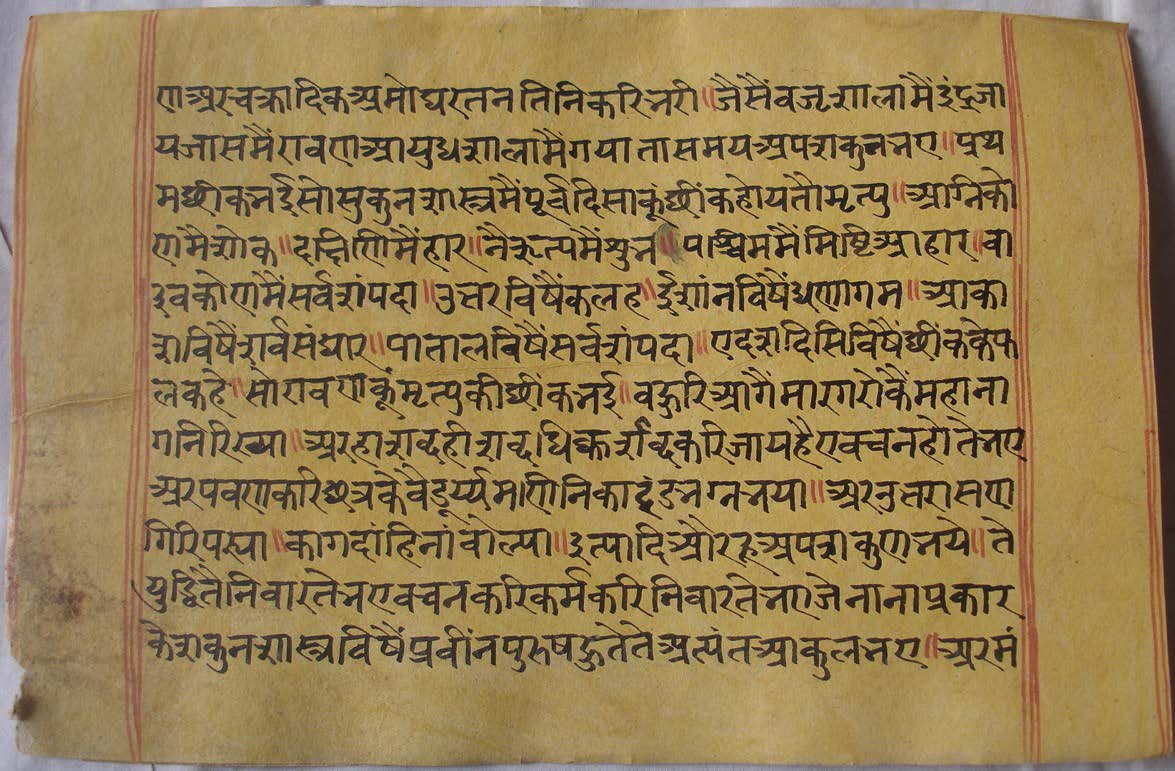 ण अर चक्रादिक अमोघ रतन तिनिकरि भरी ॥ जैसैं वज्रशालामैं इंद्र जा
य जा समैं रावण आयुधशालामैं गया ता समय अपशकुन भए ॥ प्रथ
म छींक भई सो सुकुन शास्त्रमैं पूर्व दिसाकूं छींक होय तौ मृत्यु ॥ अग्निको
णमै शोक ॥ दक्षिणमैं हार ॥ नैऋत्यमैं शुभ ॥ पश्चिममैं मिष्टि आहार ॥ वा
इवकोणमैं सर्व शंपदा ॥ उत्तरविषैं कलह ॥ ईशांनविषैं धणागम ॥ आका
शविषैं शर्व संघार ॥ पातालविषैं सर्व शंपदा ॥ ए दश दिसिविषैं छींकके फ
ल कहे ॥ सो रावणकूं मृत्युकी छींक भई ॥ वहुरि आगैं मारग रोकैं महा ना
ग निरिख्या ॥ अर हा शव्द ही शव्द धिक्कर शव्द करि जाय है ए वचन होते भए
अर पवणकरि छत्रके वैडूर्य्यमणिनिका दंड भग्न भया ॥ अर उत्तरासण
गिरि पड्या ॥ काग दांहिनां वोल्या ॥ इत्यादि औरहू अपशकुण भये ॥ ते
युद्धितै निवारते भए वचनकरि कर्मकरि निवारते भए जे नाना प्रकार
के शकुन शास्त्रविषैं प्रवींन पुरुष हुते ते अत्यंत आकुल भए ॥ अर मं